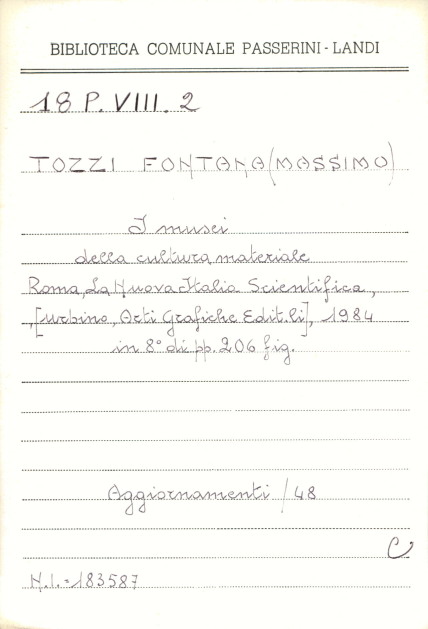 BIBLIOTECA COMUNALE PASSERINI-LANDI
18 P. VIII. 2
TOZZI FONTANA (MASSIMO)
I musei
della cultura materiale
Roma, La Nuova Italia Scientifica,
,[Urbino, Arti Grafiche Edit.li], 1984
in 8° di pp. 206 fig.
Aggiornamenti / 48
C
N.I. = 183587